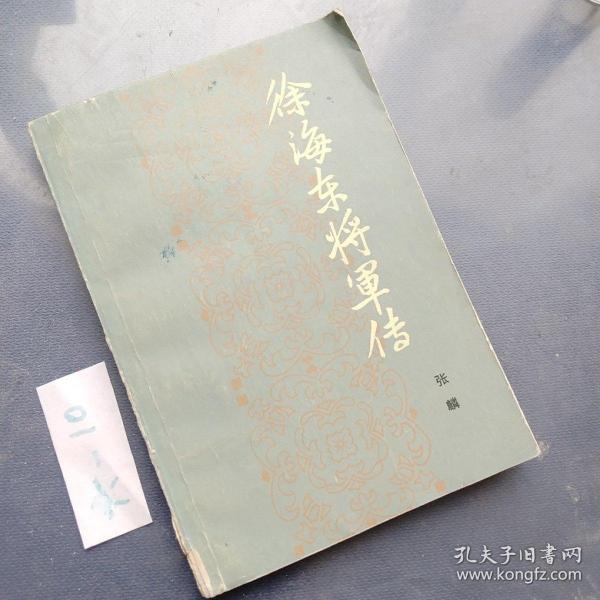 徐海东将軍传
张麟
01-水
孔夫子旧書网
www.kongfz.com